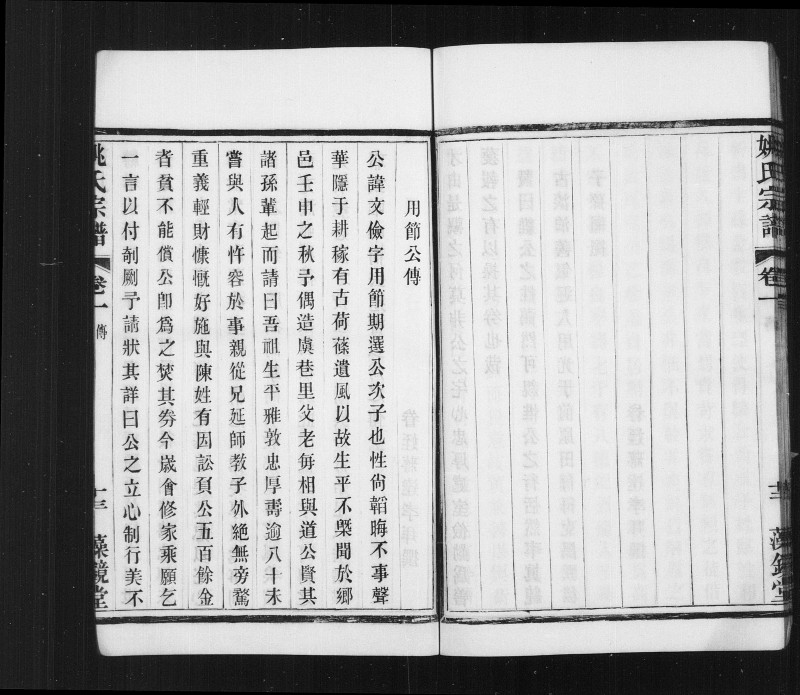 姚氏宗譜
卷一
藻鏡堂
用節公傳
公諱文儉字用節期選公次子也性尙韜晦不事聲
華隱于耕稼有古荷蓧遺風以故生平不槩聞於鄉
邑壬申之秋予偶造虞巷里父老每相與道公賢其
諸孫輩起而請曰吾祖生平雅敦忠厚壽逾八十未
嘗與人有忤容於事親從兄延師教子外絶無旁騖
重義輕財慷慨好施與陳姓有因訟負公五百餘金
者貧不能償公卽爲之焚其券今歲會修家乘願乞
一言以付剞劂予請狀其詳曰公之立心制行美不
姚氏宗譜
卷一
傳
十三
藻鏡堂